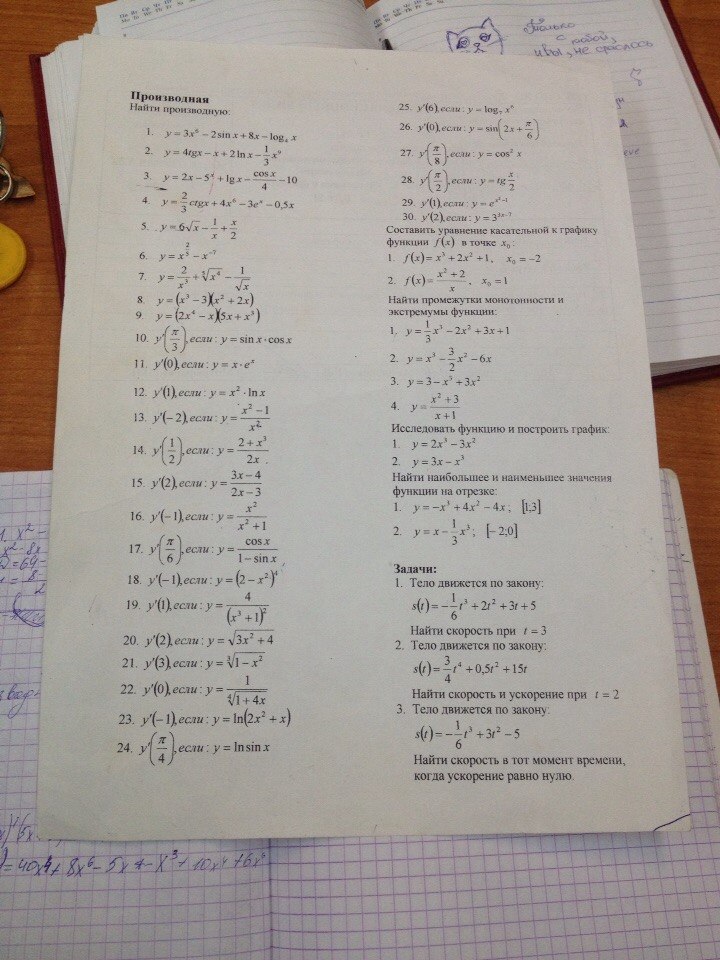 Только
с тобой,
увы, не срослось
Производная
Найти производную:
1. y = 3x⁶ − 2sin x + 8x − log₄ x
2. y = 4tgx − x + 2ln x − 1/3 x⁹
3. y = 2x − 5ˣ + lg x − cos x/4 − 10
4. y = 2/3 ctgx + 4x⁶ − 3eˣ − 0,5x
5. y = 6√x − 1/x + x/2
6. y = x^(2/5) − x⁻⁷
7. y = 2/x³ + ⁵√x⁴ − 1/√x
8. y = (x³ − 3)(x² + 2x)
9. y = (2x⁴ − x)(5x + x³)
10. y′(π/3), если : y = sin x · cos x
11. y′(0), если : y = x · eˣ
12. y′(1), если : y = x² · ln x
13. y′(−2), если : y = x² − 1/x²
14. y′(1/2), если : y = 2 + x³/2x
15. y′(2), если : y = 3x − 4/2x − 3
16. y′(−1), если : y = x²/x² + 1
17. y′(π/6), если : y = cos x/1 − sin x
18. y′(−1), если : y = (2 − x²)⁴
19. y′(1), если : y = 4/(x³ + 1)²
20. y′(2), если : y = √3x² + 4
21. y′(3), если : y = ³√1 − x²
22. y′(0), если : y = 1/⁴√1 + 4x
23. y′(−1), если : y = ln(2x² + x)
24. y′(π/4), если : y = ln sin x
25. y′(6), если : y = log₇ x⁶
26. y′(0), если : y = sin(2x + π/6)
27. y′(π/8), если : y = cos² x
28. y′(π/2), если : y = tg x/2
29. y′(1), если : y = e^(x²−1)
30. y′(2), если : y = 3^(3x−7)
Составить уравнение касательной к графику
функции f(x) в точке x₀:
1. f(x) = x³ + 2x² + 1, x₀ = −2
2. f(x) = x² + 2/x, x₀ = 1
Найти промежутки монотонности и
экстремумы функции:
1. y = 1/3 x³ − 2x² + 3x + 1
2. y = x³ − 3/2 x² − 6x
3. y = 3 − x³ + 3x²
4. y = x² + 3/x + 1
Исследовать функцию и построить график:
1. y = 2x³ − 3x²
2. y = 3x − x³
Найти наибольшее и наименьшее значения
функции на отрезке:
1. y = −x³ + 4x² − 4x ; [1;3]
2. y = x − 1/3 x³ ; [−2;0]
Задачи:
1. Тело движется по закону:
s(t) = −1/6 t³ + 2t² + 3t + 5
Найти скорость при t = 3
2. Тело движется по закону:
s(t) = 3/4 t⁴ + 0,5t² + 15t
Найти скорость и ускорение при t = 2
3. Тело движется по закону:
s(t) = −1/6 t³ + 3t² − 5
Найти скорость в тот момент времени,
когда ускорение равно нулю.